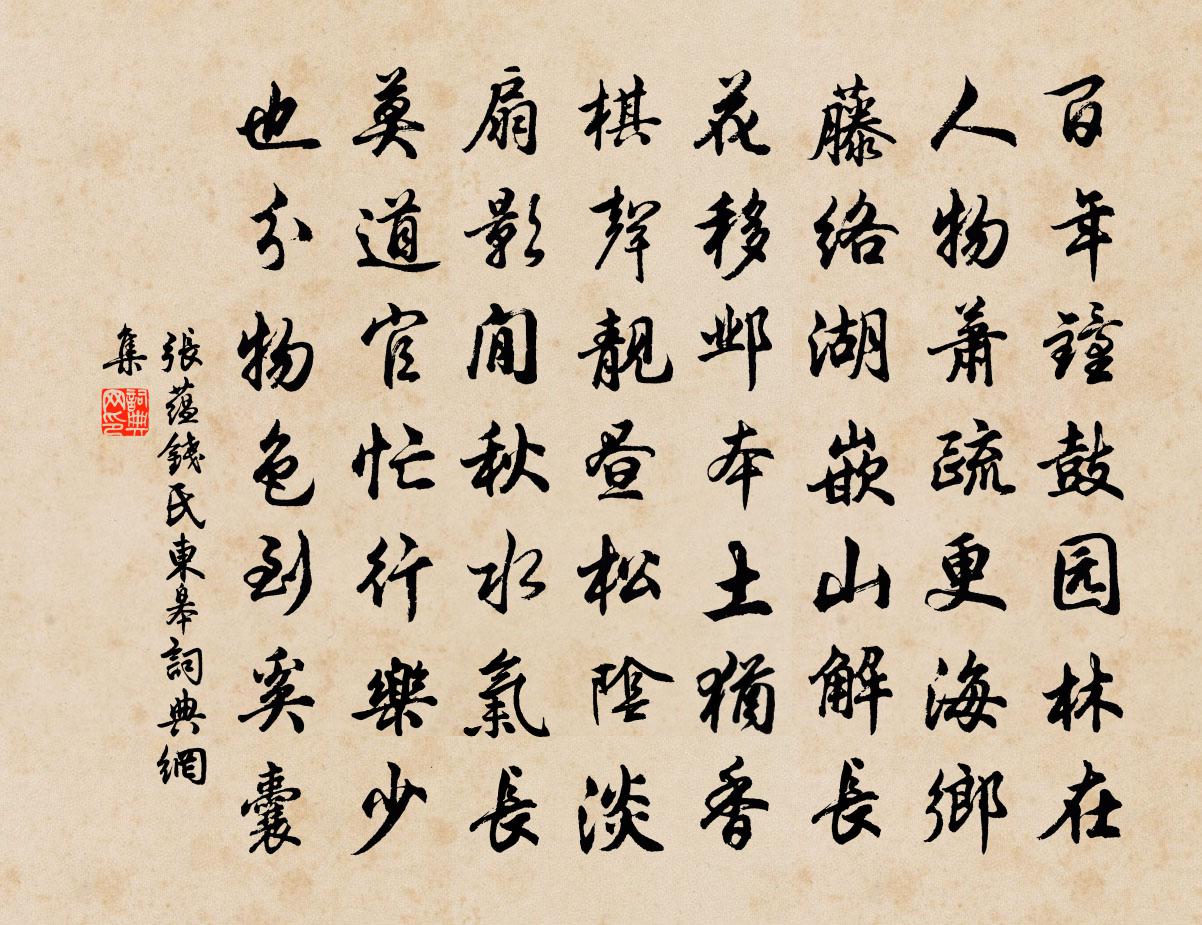 百年鐘鼓园林在
人物蕭疏更海鄉
藤络湖嵌山解長
花移邺本土猶香
棋聲靓昼松陰淡
扇影闲秋水氣長
莫道官忙行樂少
也分物色到奚囊
張蕴錢氏東皋詞典網
集
詞典
网印